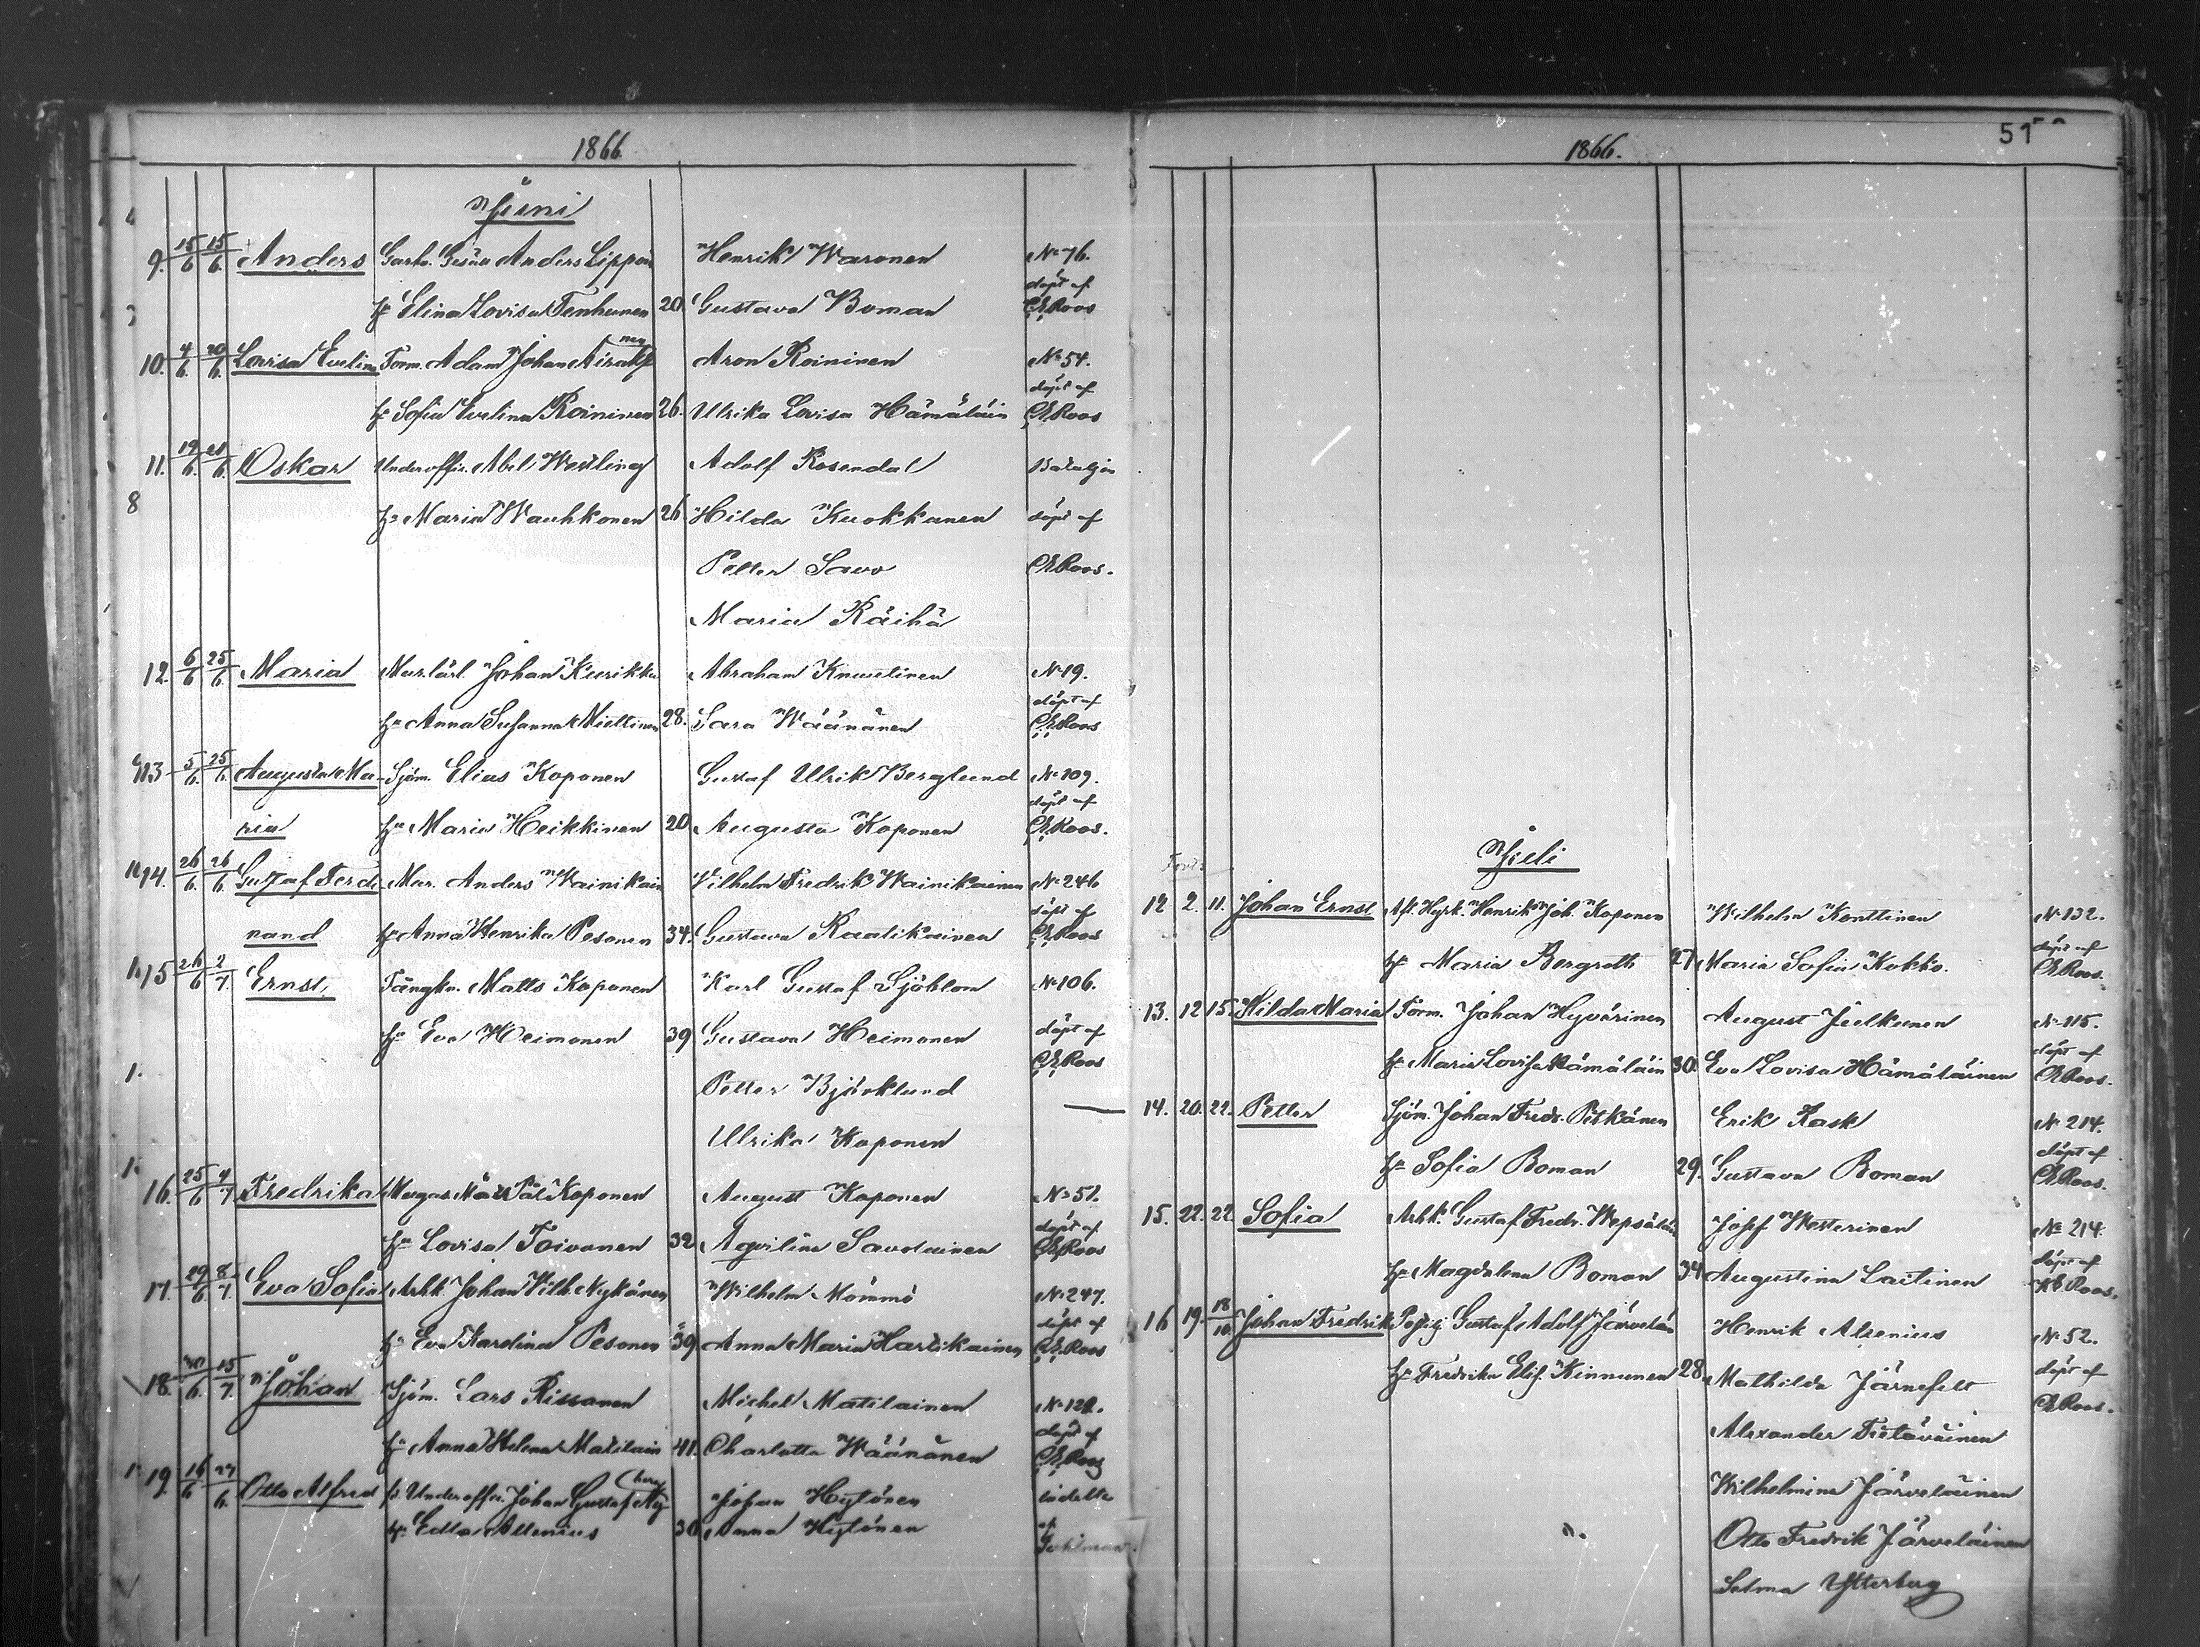 1866
Juni
9. 15/6 15/6 Anders Garfv. Gesäll Anders Lippoin Henrik Waronen No 76.
hu Elina Lovisa Tenhunen 20 Gustava Boman döpt af C.E. Roos
10. 4/6 20/6 Lovisa Evelina Torm. Adam Johan Aira Aron Roininen No 54.
hu Sofia Evelina Roininen 26. Ulrika Lovisa Hämäläin döpt af C.E. Roos
11. 19/6 21/6 Oskar Underoffic. Abel Westling Adolf Rosendal Bataljon
hu Maria Wauhkonen 26 Hilda Kuokkanen döpt af
Petter Savo C.E. Roos.
Maria Räihä
12. 6/6 25/6 Maria Johan Kurikka Abraham Knuutinen No 19.
hu Anna Susanna Miettinen 28. Sara Wäänänen döpt af C.E. Roos
13 5/6 25/6 Augusta Ma- Sjöm. Elias Koponen Gustaf Ulrik Berglund No 109.
ria hu Maria Heikkinen 20 Augusta Koponen döpt af C.E. Roos.
14. 26/6 26/6 Gustaf Ferdi Mur. Anders Wainikain Vilhelm Fredrik Wainikainen No 246
nand hu Anna Henrika Pesonen 34. Gustava Raatikainen döpt af C.E. Roos
15 26/6 2/7 Ernst, Fångkn. Matts Koponen Karl Gustaf Sjöblom No 106.
hu Eva Heimonen 39 Gustava Heimonen döpt af C.E. Roos
Petter Björklund
Ulrika Koponen
16. 25/6 4/7 Fredrika Pål Koponen August Koponen No 51.
hu Lovisa Toivanen 32 Aqvilina Savolainen döpt af C.E. Roos
17. 29/6 8/7 Eva Sofia Arbk. Johan Vilh. Nykänen Wilhelm Mömmö No 247.
hu Eva Karolina Pesonen 39 Anna Maria Hartikainen döpt af C.E. Roos
18. 15/7 Johan Sjöm. Lars Rissanen Michel Matilainen No 121.
hu Anna Helena Matilain 41. Charlotta Wäänänen döpt af C.E. Roos
19 16/6 27/6 Otto Alfred Underoffic. Johan Gustaf Ny berg Johan Hytönen
hu Edla Allenius 36 Anna Hytönen af
1866.
51
Juli
12 2. 11. Johan Ernst Afl. Hyrk. Henrik Joh. Koponen Wilhelm Konttinen No 132.
hu Maria Bergroth 27 Maria Sofia Kokko. döpt af C.E. Roos.
13. 12 15. Hilda Maria Torm. Johan Hyvärinen August Julkunen No 115.
hu Maria Lovisa Hämäläin 30 Eva Lovisa Hämäläinen döpt af C.E. Roos.
14. 20. 22. Petter Sjöm. Johan Fredr. Pitkänen Erik Kask No 214.
hu Sofia Boman 29. Gustava Boman döpt af C.E. Roos.
15. 22. 22. Sofia Arbk. Gustaf Fredr. Wepsäläin Josef Westerinen No 214.
hu Magdalena Boman 34 Augustina Laitinen döpt af C.E. Roos.
16 19 18/10 Johan Fredrik Gustaf Adolf Järveläin Henrik Alcenius No 52.
hu Fredrika Elis. Kinnunen 28. Mathilda Järnefelt döpt af
Alexander Tietäväinen C.E. Roos.
Wilhelmina Järveläinen
Otto Fredrik Järveläinen
Selma Ytterberg